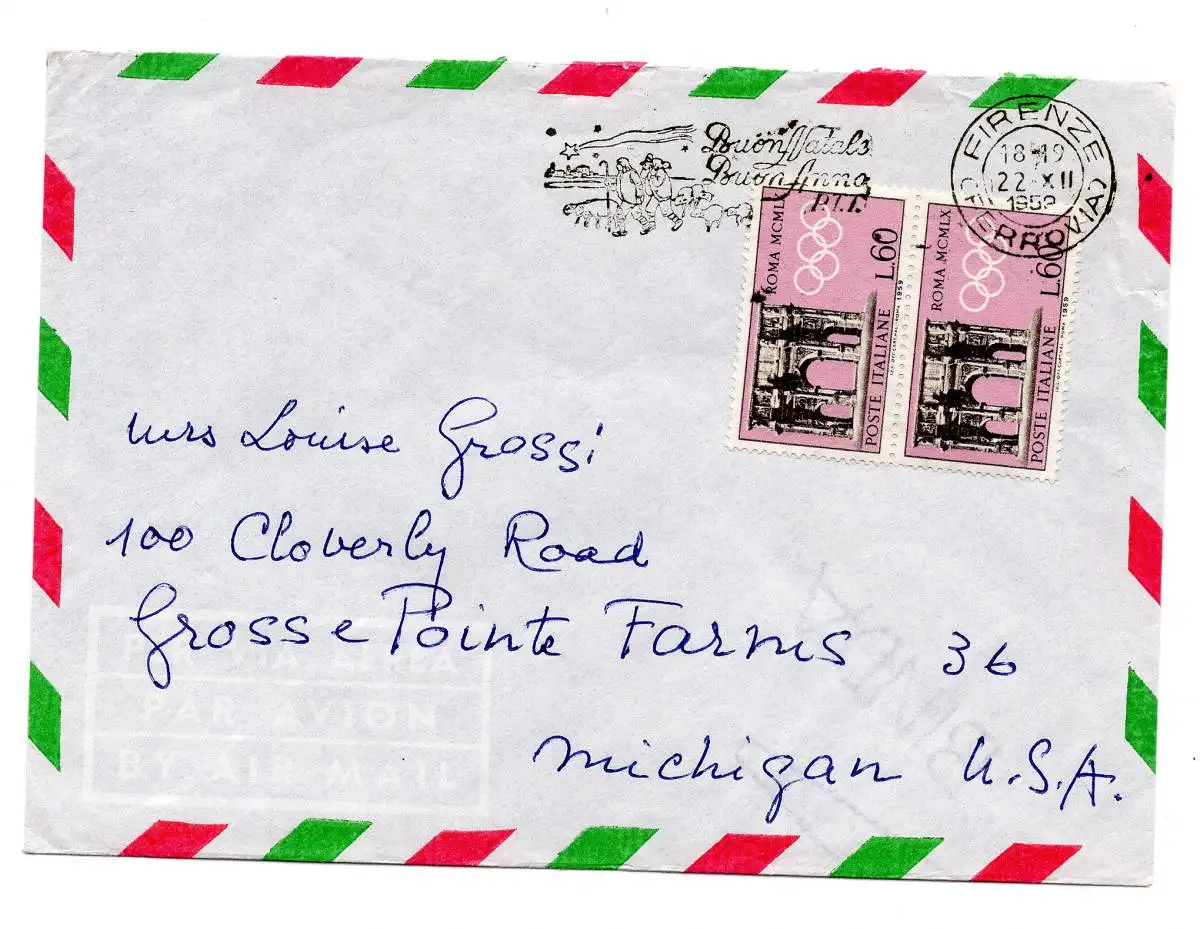 Buon Natale
Buon Anno
P.T.T.
FIRENZE
18-19
22·XII
FERROVIA
ROMA MCMLX
L.60
POSTE ITALIANE
ROMA MCMLX
L.60
POSTE ITALIANE
Mrs Louise Grossi
100 Cloverly Road
Grosse Pointe Farms 36
Michigan U.S.A.
PER VIA AEREA
PAR AVION
BY AIR MAIL